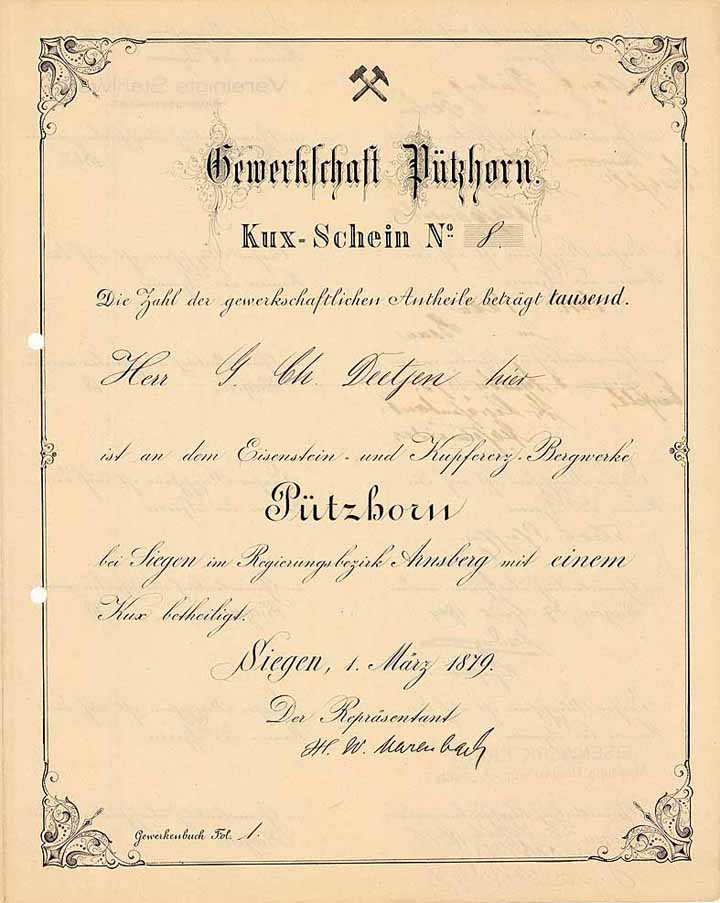 Gewerkschaft Pützhorn.
Kux-Schein No. 8.
Die Zahl der gewerkschaftlichen Antheile beträgt tausend.
Herr G. Ch. Deetjen hier
ist an dem Eisenstein- und Kupfererz-Bergwerke
Pützhorn
bei Siegen im Regierungsbezirk Arnsberg mit einem
Kux betheiligt.
Siegen, 1. März 1879.
Der Repräsentant
H. W. Marenbach
Gewerkenbuch Fol. 1.